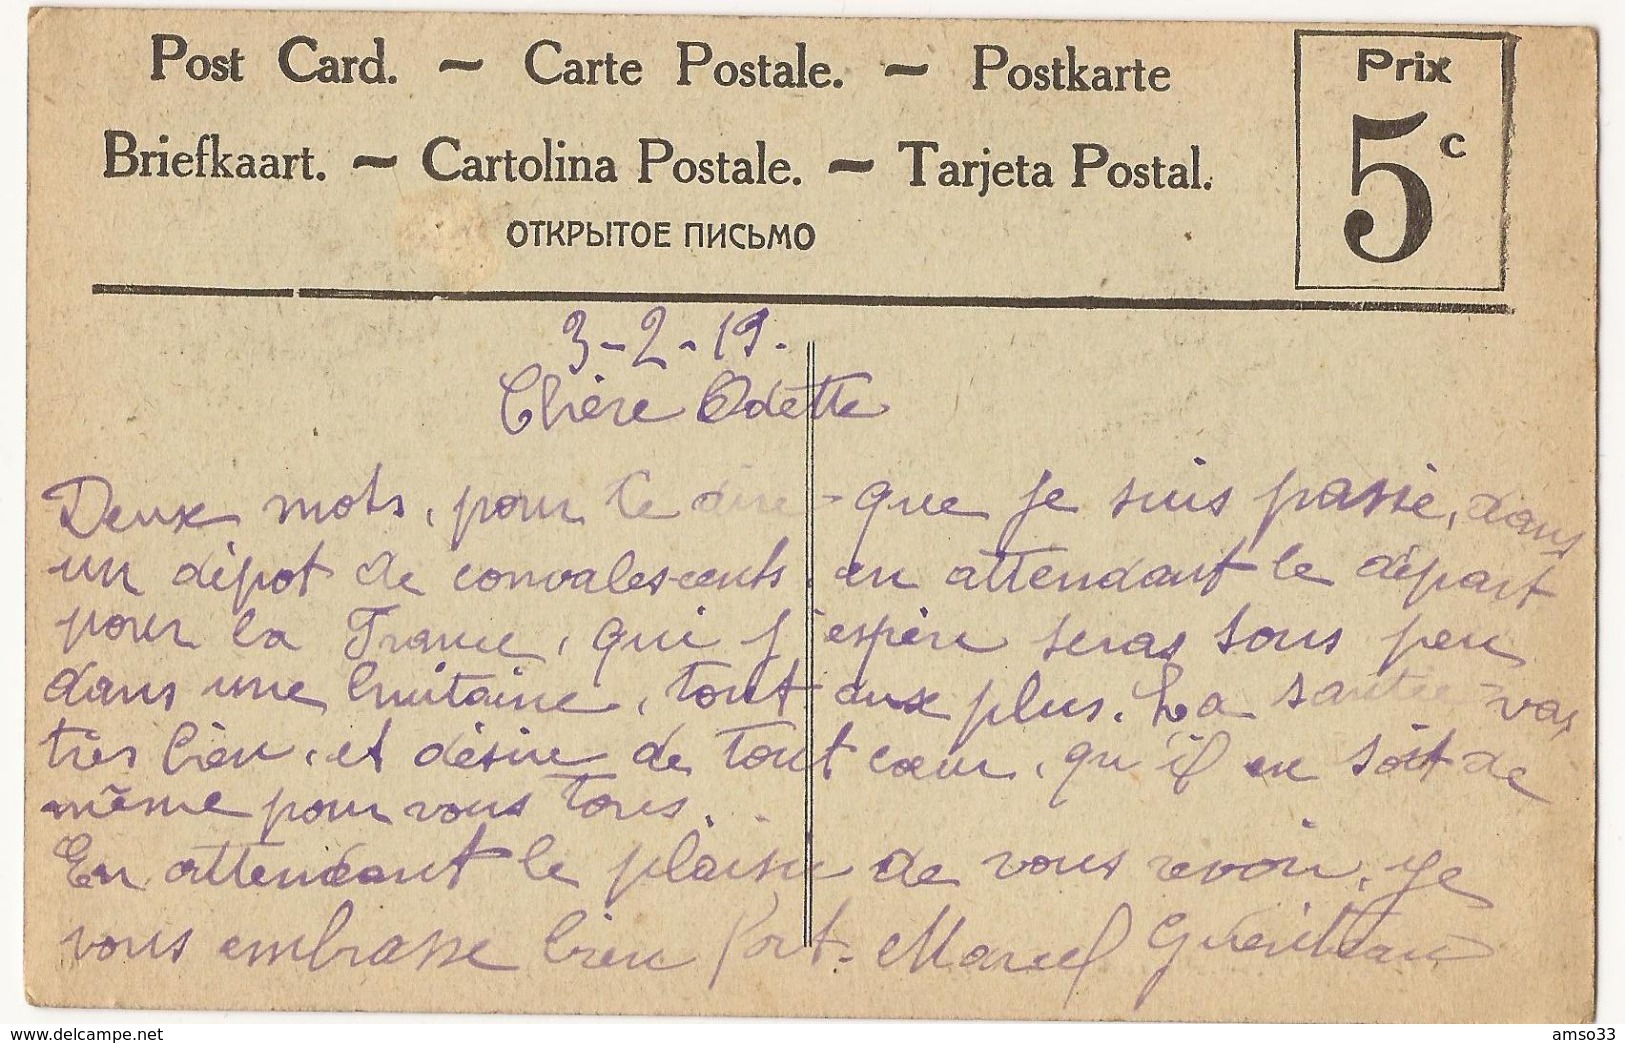 Post Card. ~ Carte Postale. ~ Postkarte
Prix
Briefkaart. ~ Cartolina Postale. ~ Tarjeta Postal.
5c
ОТКРЫТОЕ ПИСЬМО
3-2-19.
Chère Odette
Deux mots, pour te dire que je suis passé, dans
un dépot de convalescents, en attendant le départ
pour la France, qui j'espère seras sous peu
dans une huitaine, tout aux plus. La santée vas
très bien, et désire de tout cœur, qu'il en soit de
même pour vous tous.
En attendant le plaisir de vous revoir, je
vous embrasse bien fort. Marcel
www.delcampe.net
amso33